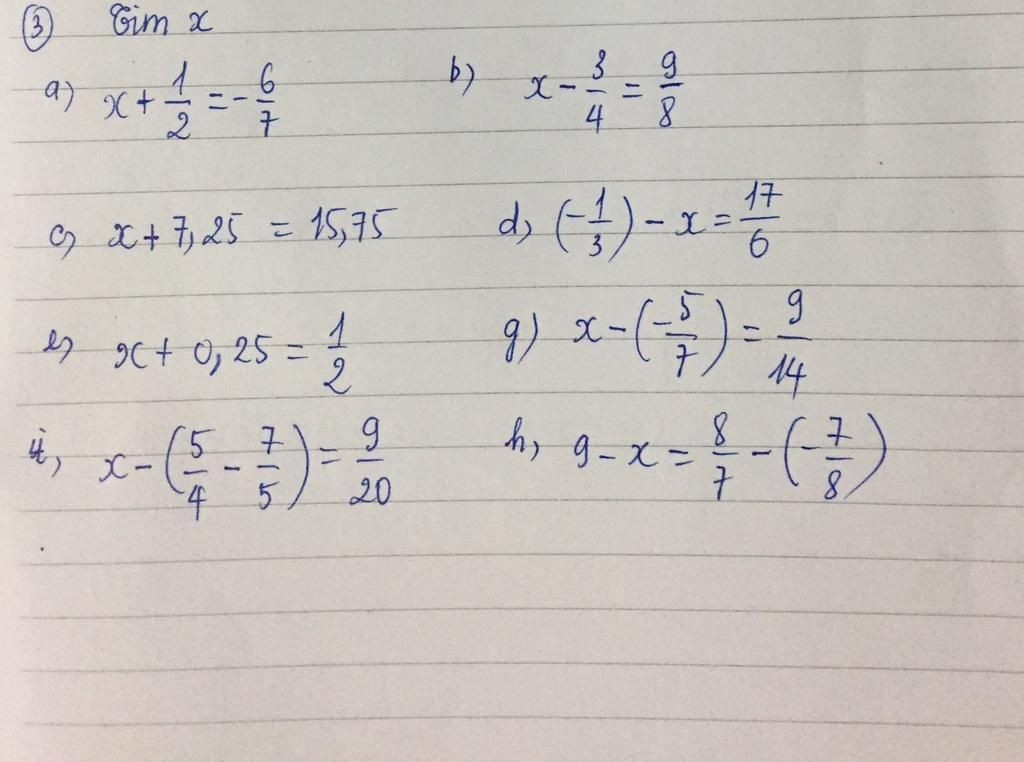 ③ Tìm x
a) x + 1/2 = - 6/7 b) x - 3/4 = 9/8
c) x + 7,25 = 15,75 d) (-1/3) - x = 17/6
e) x + 0,25 = 1/2 g) x - (-5/7) = 9/14
i) x - (5/4 - 7/5) = 9/20 h) 9 - x = 8/7 - (-7/8)